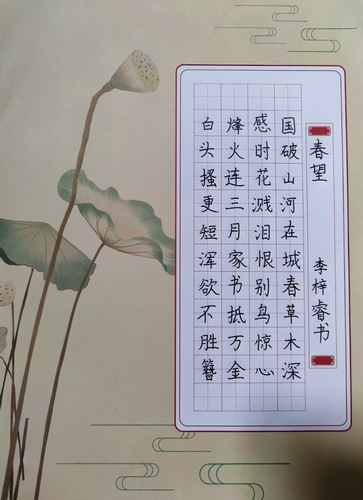 春望
李梓睿书
国破山河在城春草木深
感时花溅泪恨别鸟惊心
烽火连三月家书抵万金
白头搔更短浑欲不胜簪